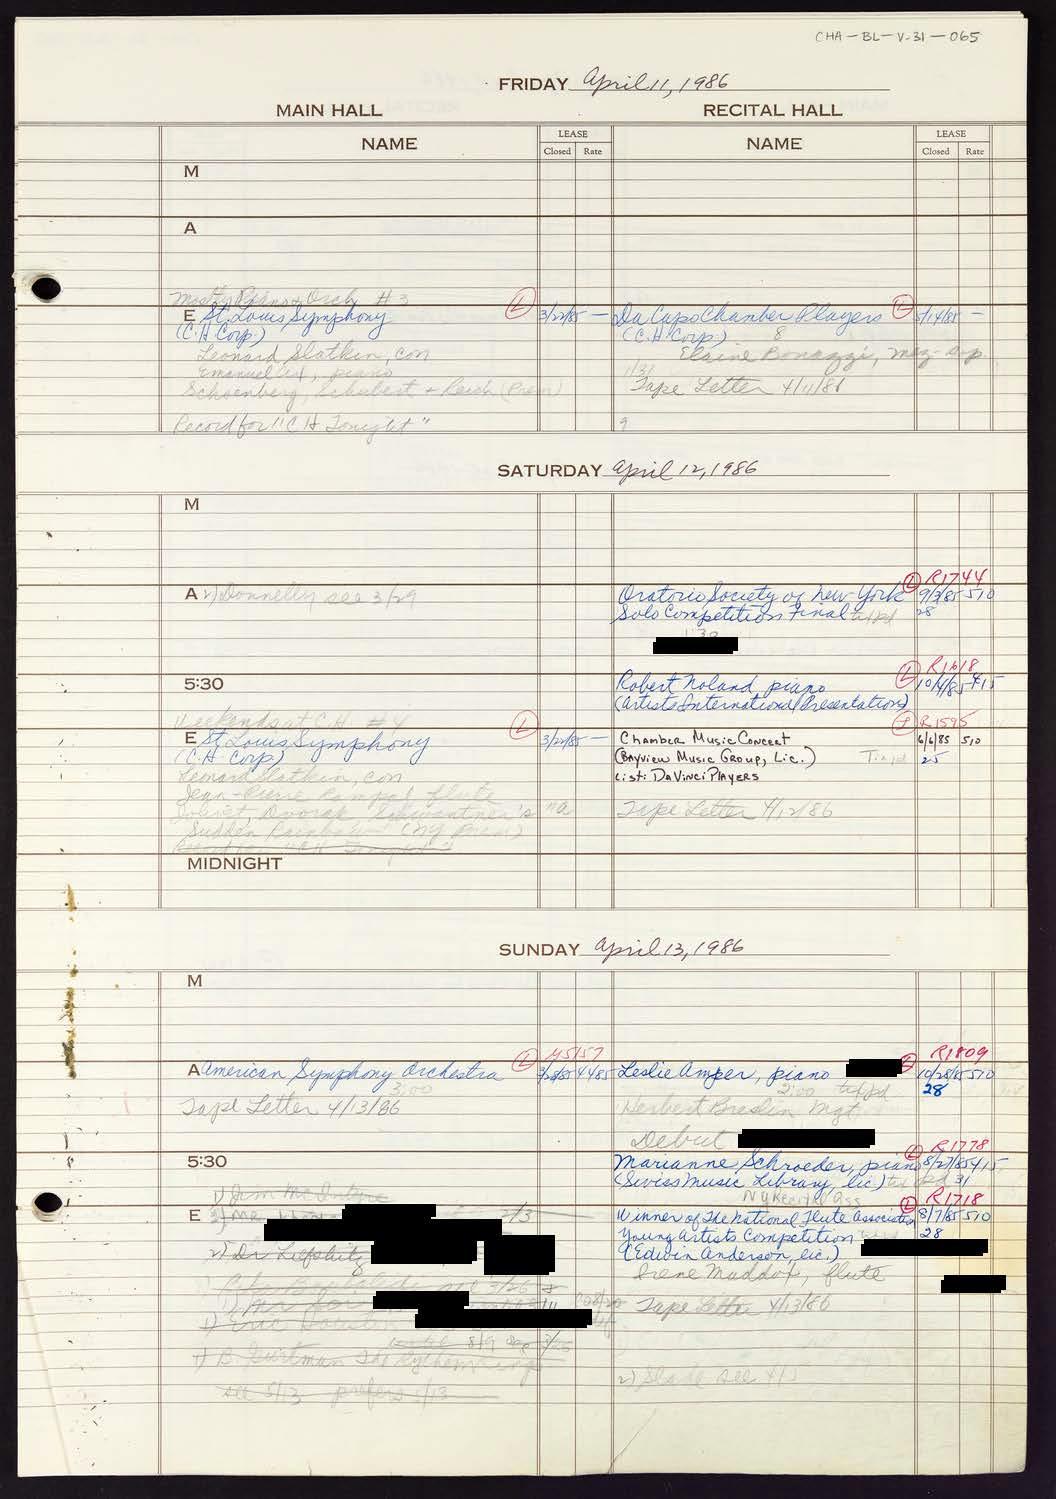 CHA-BL-V-31-065
FRIDAY April 11, 1986
MAIN HALL RECITAL HALL
NAME LEASE Closed Rate NAME LEASE Closed Rate
M
A
Mostly Piano + Orch #3
E St. Louis Symphony L 3/22/85 —
(C.H. Corp)
Leonard Slatkin, con
Emanuel Ax, piano
Schoenberg, Schubert + Reich (Prem)
Record for "C H Tonight"
Da Capo Chamber Players L 5/14/85 —
(C.H. Corp) 8
Elaine Bonazzi, mez-sop.
1/31
Tape Letter 4/11/86
9
SATURDAY April 12, 1986
M
A 2) Donnelly see 3/29
L R1744
Oratorio Society of New York 9/3/85 510
Solo Competition Final 28
1:30
5:30
L R1618
Robert Noland, piano 10/4/85 415
(Artists International Presentation)
Weekends at C.H. #4
E St. Louis Symphony L 3/22/85 —
(C.H. Corp)
Leonard Slatkin, con
Jean-Pierre Rampal, flute
Dvorak, Schwantner's "A
Sudden Rainbow" (NY Prem)
Record for "C H Tonight"
L R1595
Chamber Music Concert 6/6/85 510
(Bayview Music Group, Lic.) 25
List: DaVinci Players
Tape Letter 4/12/86
MIDNIGHT
SUNDAY April 13, 1986
M
L M5157
A American Symphony Orchestra 4185
3:00
Tape Letter 4/13/86
L R1809
Leslie Amper, piano 10/28/85 510
2:00 28
Herbert Breslin Mgt
Debut
5:30
L R1778
Marianne Schroeder, piano 8/27/85 415
(Swiss Music Library, lic) 31
NY Recital Ass
1) Jim McIntyre
E
2/3
2) Dr Lifshitz
1) Eric
1) B. Gurtman The
see 5/13 prefers 5/13
L R1718
Winner of The National Flute Association 8/7/85 510
Young Artists Competition 28
(Edwin Anderson, lic.)
Irene Maddox, flute
Tape Letter 4/13/86
2) Slade see 4/